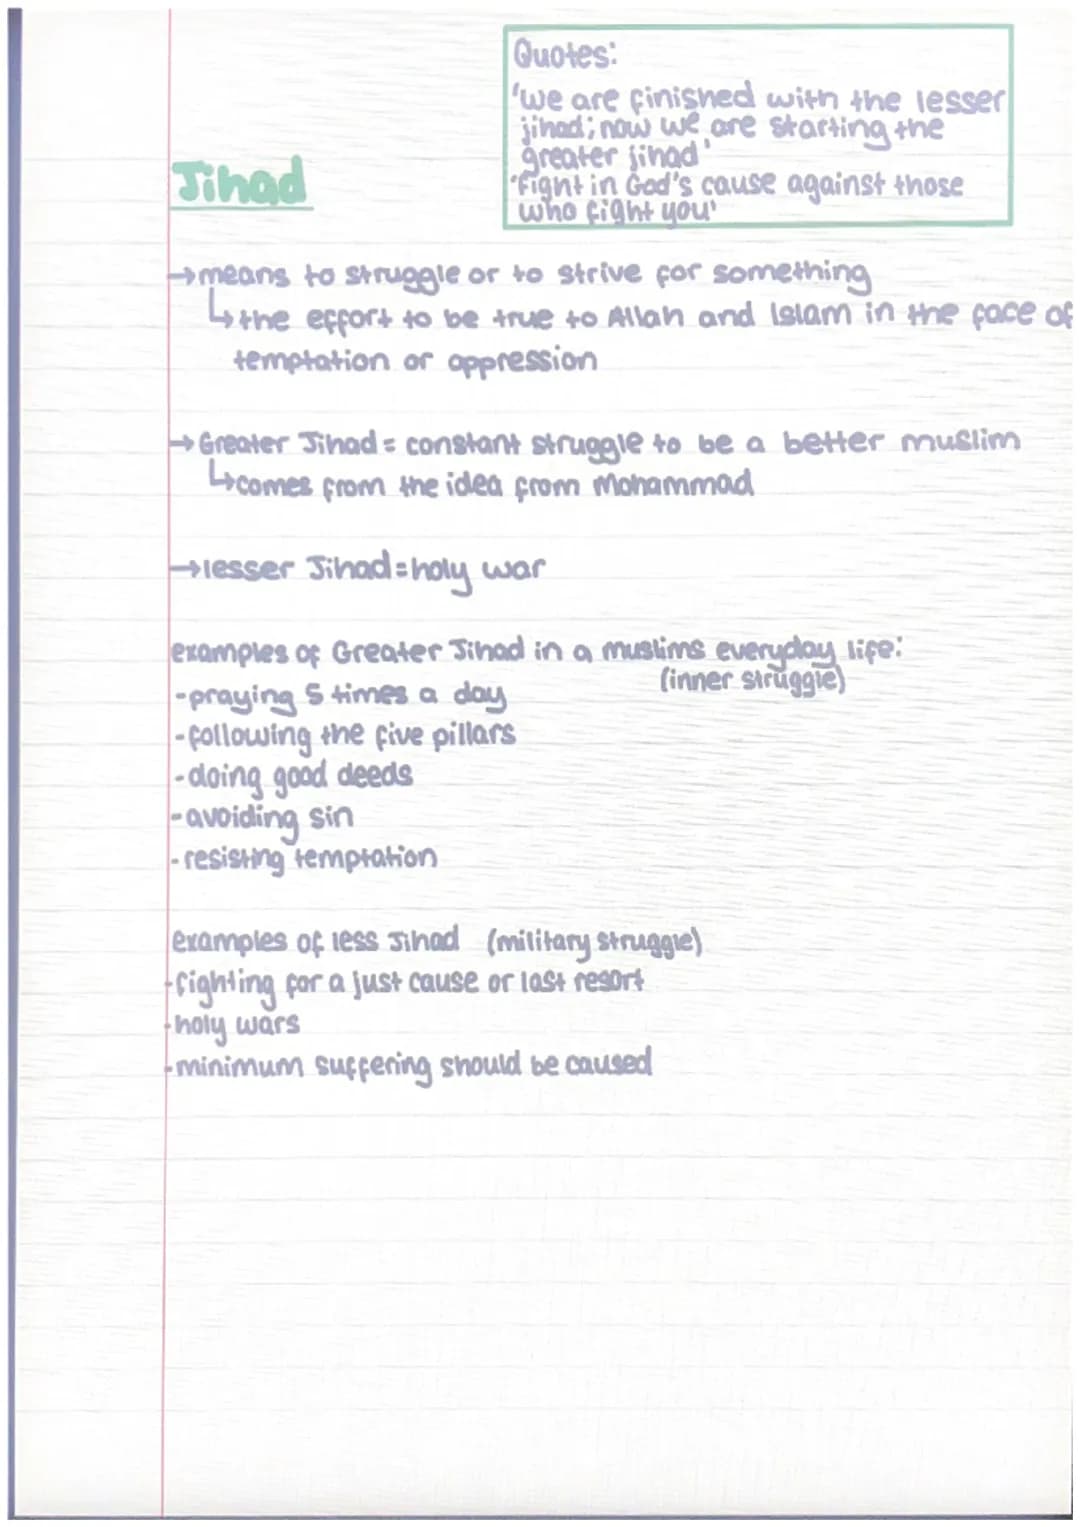 Quotes:
'we are finished with the lesser
jihad; now we are starting the
greater jihad'
'Fight in God's cause against those
who fight you'
Jihad
→means to struggle or to strive for something
↳the effort to be true to Allah and Islam in the face of
temptation or oppression
→Greater Jihad = constant struggle to be a better muslim
↳comes from the idea from Mohammad
→lesser Jihad = holy war
examples of Greater Jihad in a muslims everyday life:
(inner struggle)
-praying 5 times a day
-following the five pillars
-doing good deeds
-avoiding sin
-resisting temptation
examples of less Jihad (military struggle)
-fighting for a just cause or last resort
-holy wars
-minimum suffering should be caused